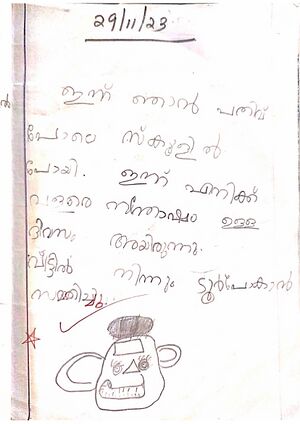 29/11/23
ഇന്ന് ഞാൻ പതിവ്
പോലെ സ്കൂളിൽ
പോയി. ഇന്ന് എനിക്ക്
വളരെ സന്തോഷം ഉള്ള
ദിവസം ആയിരുന്നു.
വീട്ടിൽ നിന്നും ടൂർപോകാൻ
സമ്മതിച്ചു.